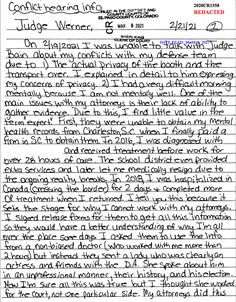 Conflict hearing info.
2020CR1358
REDACTED
Judge Werner,
2/21/21
On 2/18/2021 I was unable to talk with Judge
Bain about my conflicts with my defense team
due to 1) The actual privacy of the booth and the
transport over. I explained in detail to him expressing
my concerns of privacy. 2) I had a very difficult morning
mentally because I am not mentally well. One of the
main issues with my attorneys is their lack of ability to
gather evidence. Due to this, I find little value in the
term expert. First, they were unable to obtain my mental
health records from Charleston, SC when I finally paid a
firm in SC to obtain them. In 2016, I was diagnosed with
and received treatment before work for
over 28 hours of care. The school district even provided
extra services and later let me medically resign due to
the ongoing reality breaks. In 2018, I was hospitalized in
Canada (crossing the border) for 2 days & completed more
of treatment when I returned. I tell you this because it
sets the stage for why I cannot work with my attorneys.
I signed release forms for them to get all this information
so they would have a better understanding of why I'm all
over the place some days. I asked them to use the info
from a non-biased doctor (who worked with me more than
2 hours) but instead they sent a lady who was clearly on
actress and friends with the D.A. She spoke about him
in an unprofessional manner, their history, and his election.
Now I'm sure all this was true but I thought she worked
for the court, not one particular side. My attorneys did this